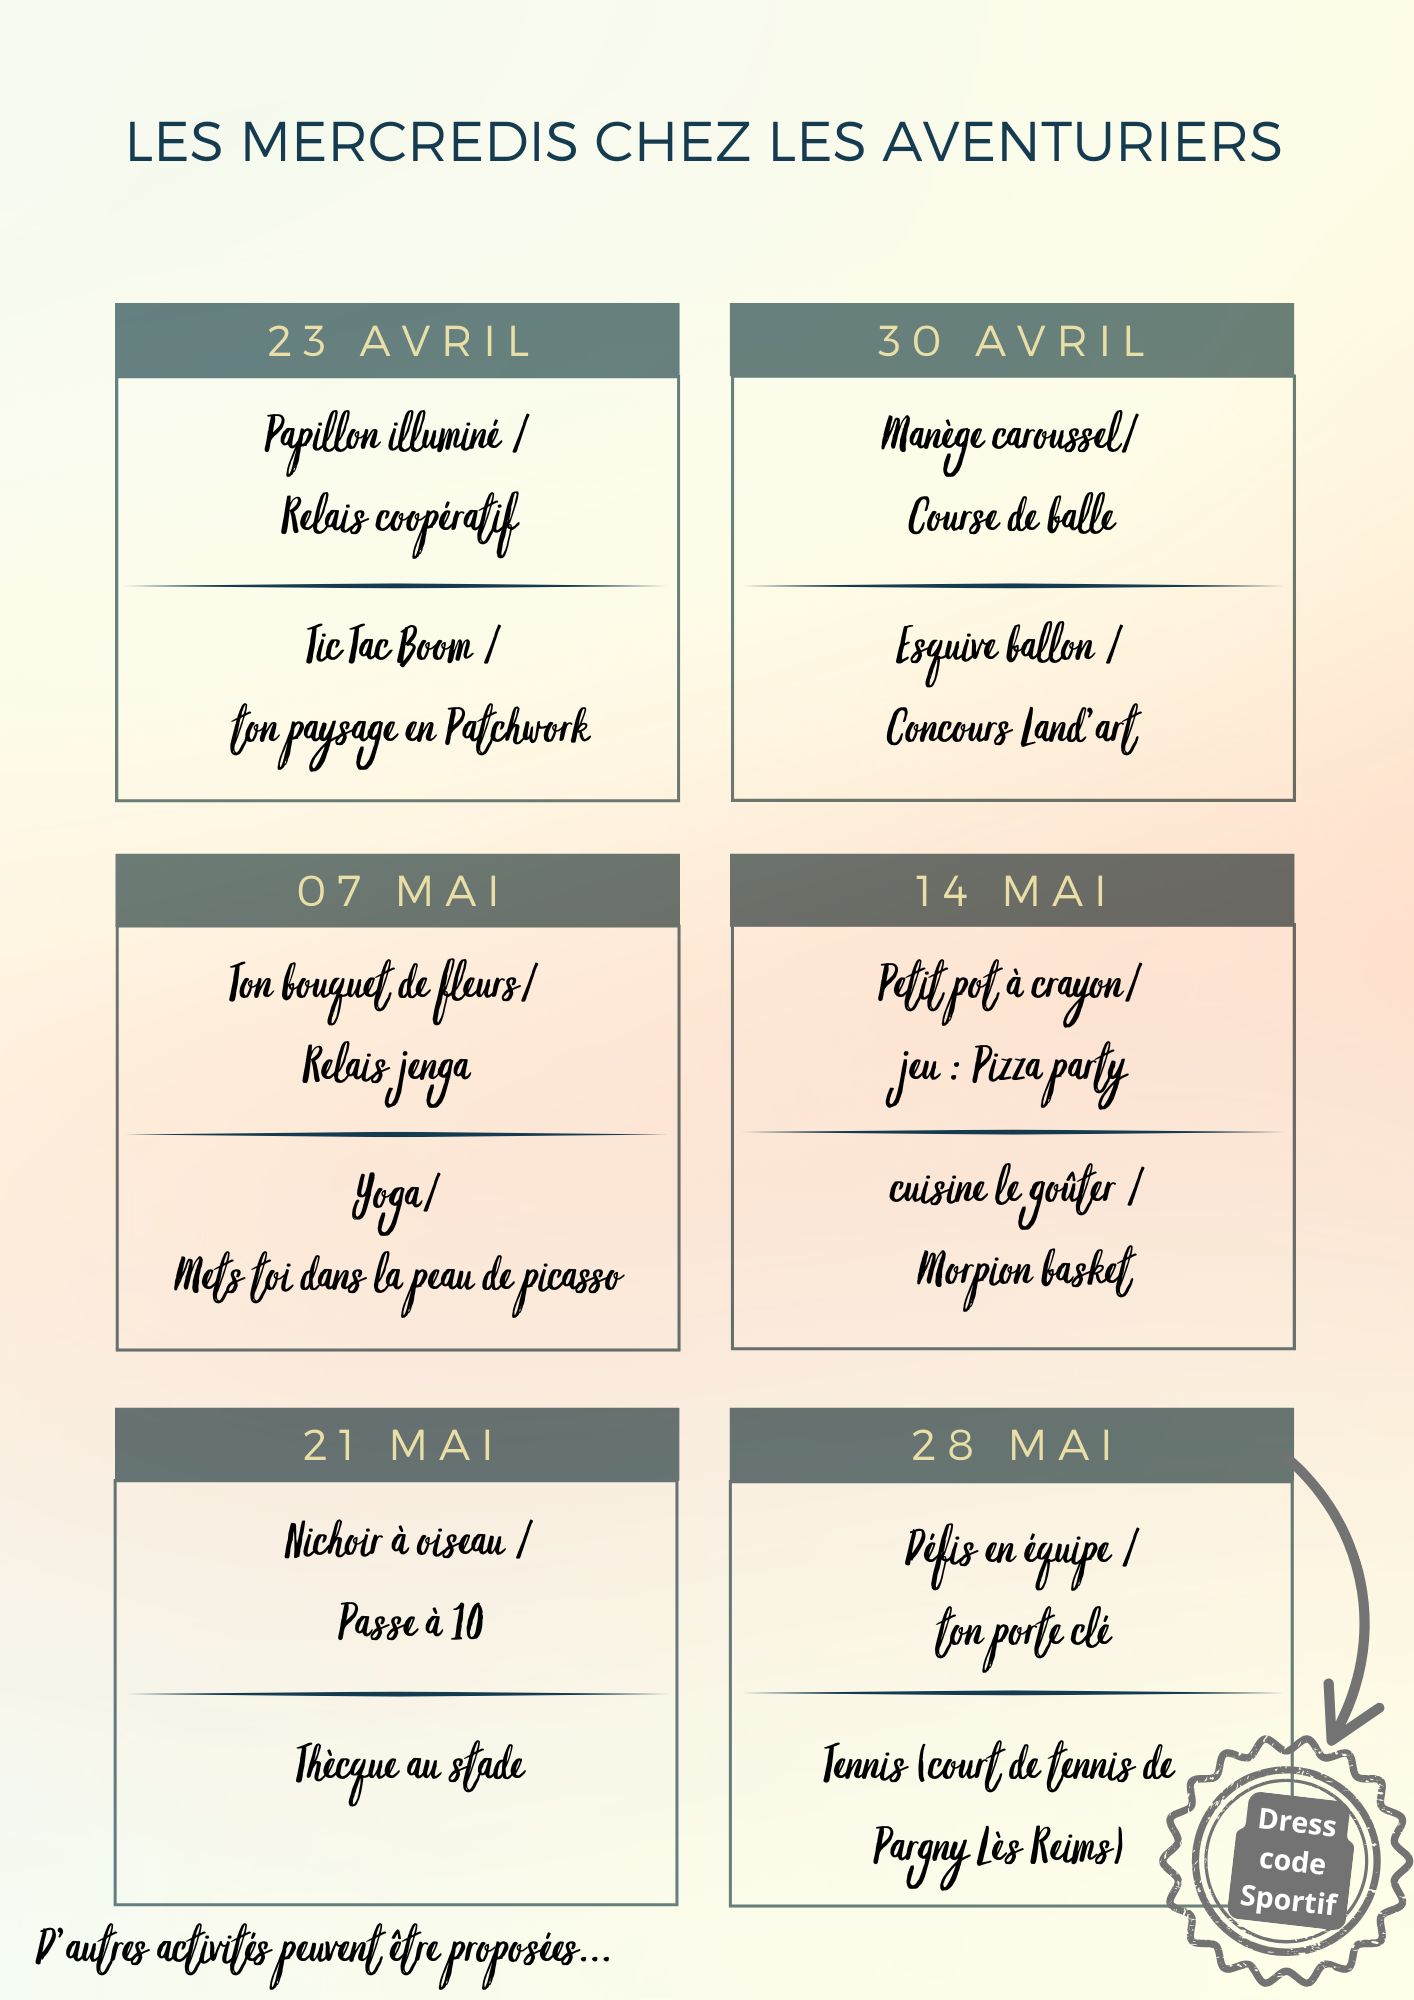 LES MERCREDIS CHEZ LES AVENTURIERS
23 AVRIL
Papillon illuminé /
Relais coopératif
Tic Tac Boom /
ton paysage en Patchwork
30 AVRIL
Manège caroussel/
Course de balle
Esquive ballon /
Concours Land'art
07 MAI
Ton bouquet de fleurs/
Relais jenga
Yoga/
Mets toi dans la peau de picasso
14 MAI
Petit pot à crayon/
jeu : Pizza party
cuisine le goûter /
Morpion basket
21 MAI
Nichoir à oiseau /
Passe à 10
Thècque au stade
28 MAI
Défis en équipe /
ton porte clé
Tennis (court de tennis de
Pargny Lès Reims)
Dress
code
Sportif
D'autres activités peuvent être proposées...